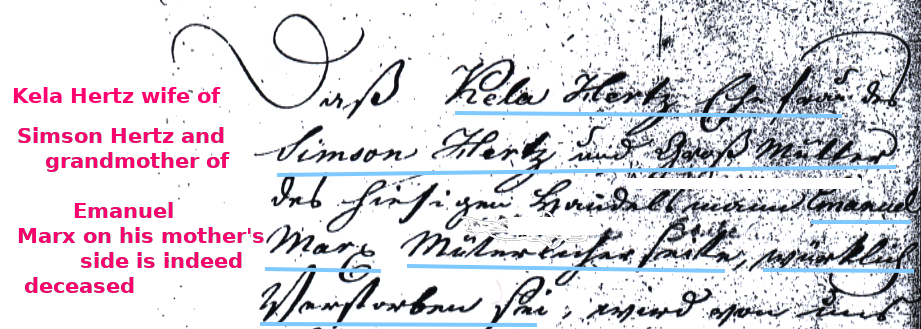 Kela Hertz wife of
Simson Hertz and
grandmother of
Emanuel
Marx on his mother's
side is indeed
deceased
Daß Kela Hertz Ehefrau des
Simson Hertz und Groß Mutter
des hiesigen Handelsmann Emanuel
Marx Müterlicher Seite, würklich
Verstorben sei, wird von uns